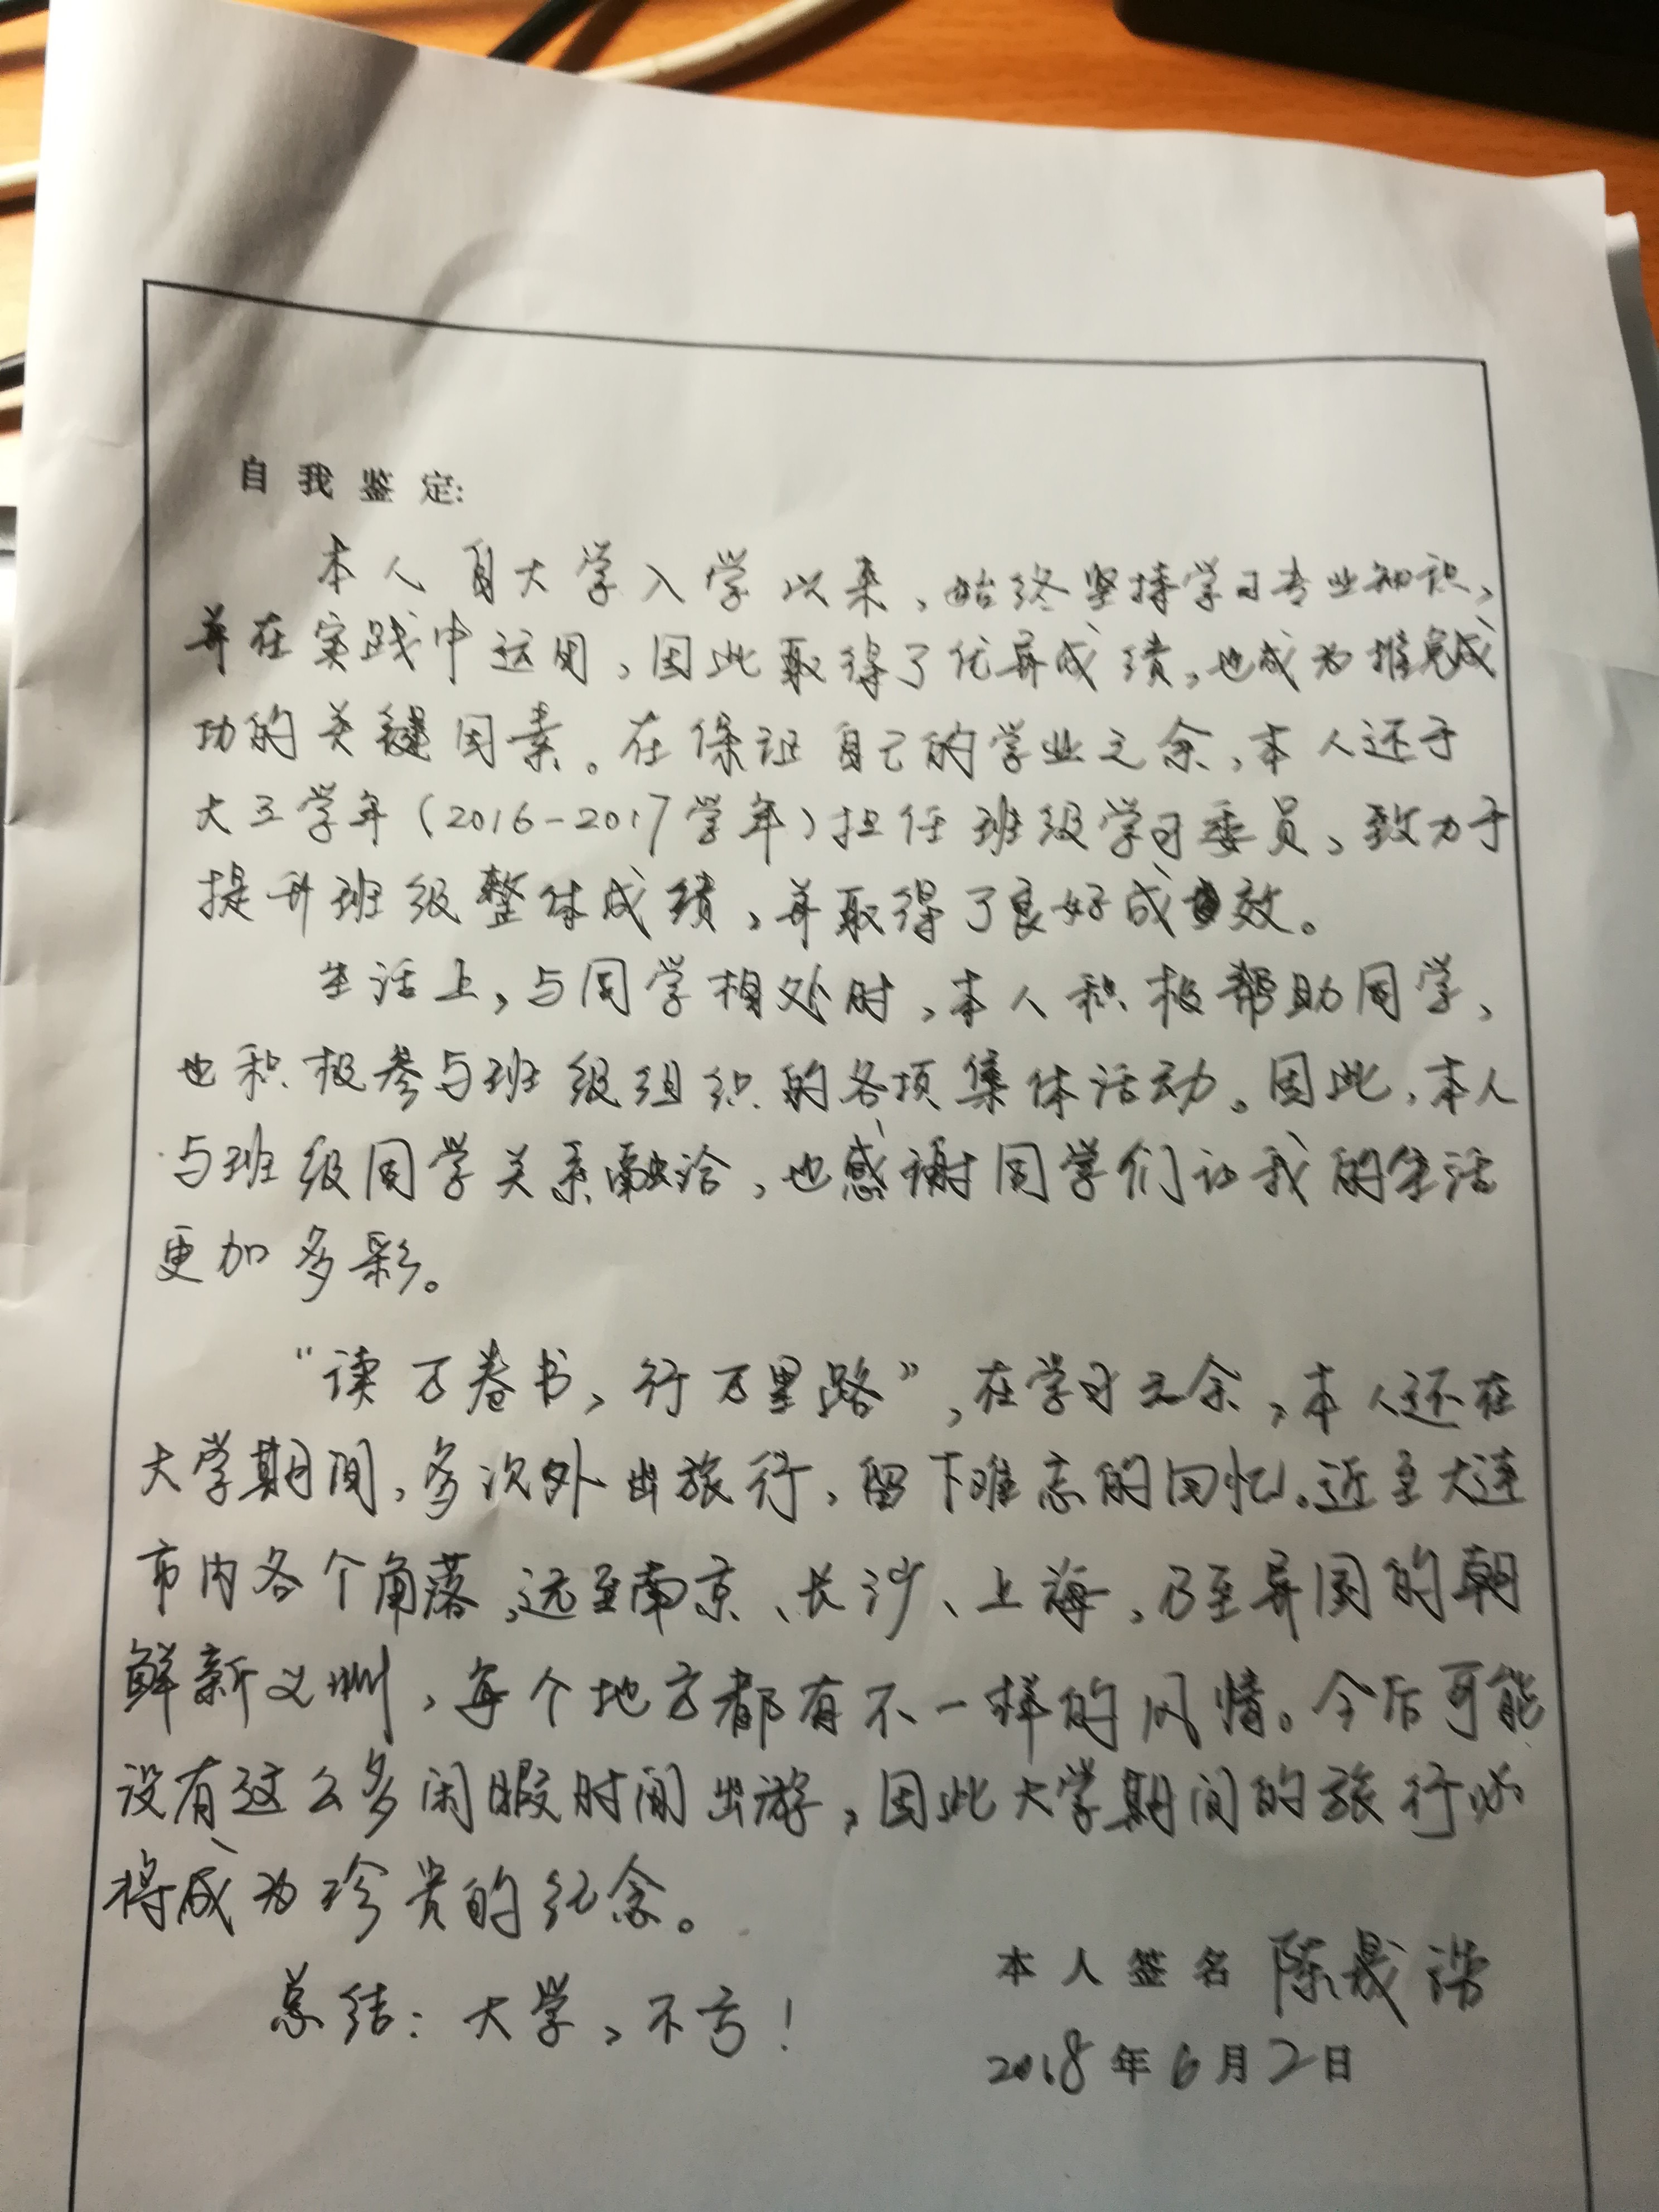 自我鉴定:
本人自大学入学以来,始终坚持学习专业知识,
并在实践中运用,因此取得了优异成绩,也成为推免成
功的关键因素。在保证自己的学业之余,本人还于
大三学年(2016-2017学年)担任班级学习委员,致力于
提升班级整体成绩,并取得了良好成效。
生活上,与同学相处时,本人积极帮助同学,
也积极参与班级组织的各项集体活动。因此,本人
与班级同学关系融洽,也感谢同学们让我的生活
更加多彩。
“读万卷书,行万里路”,在学习之余,本人还在
大学期间,多次外出旅行,留下难忘的回忆。近至大连
市内各个角落,远至南京、长沙、上海,乃至异国的朝
鲜新义州,每个地方都有不一样的风情。今后可能
没有这么多闲暇时间出游,因此大学期间的旅行必
将成为珍贵的纪念。
总结:大学,不亏!
本人签名 陈晟浩
2018年6月2日